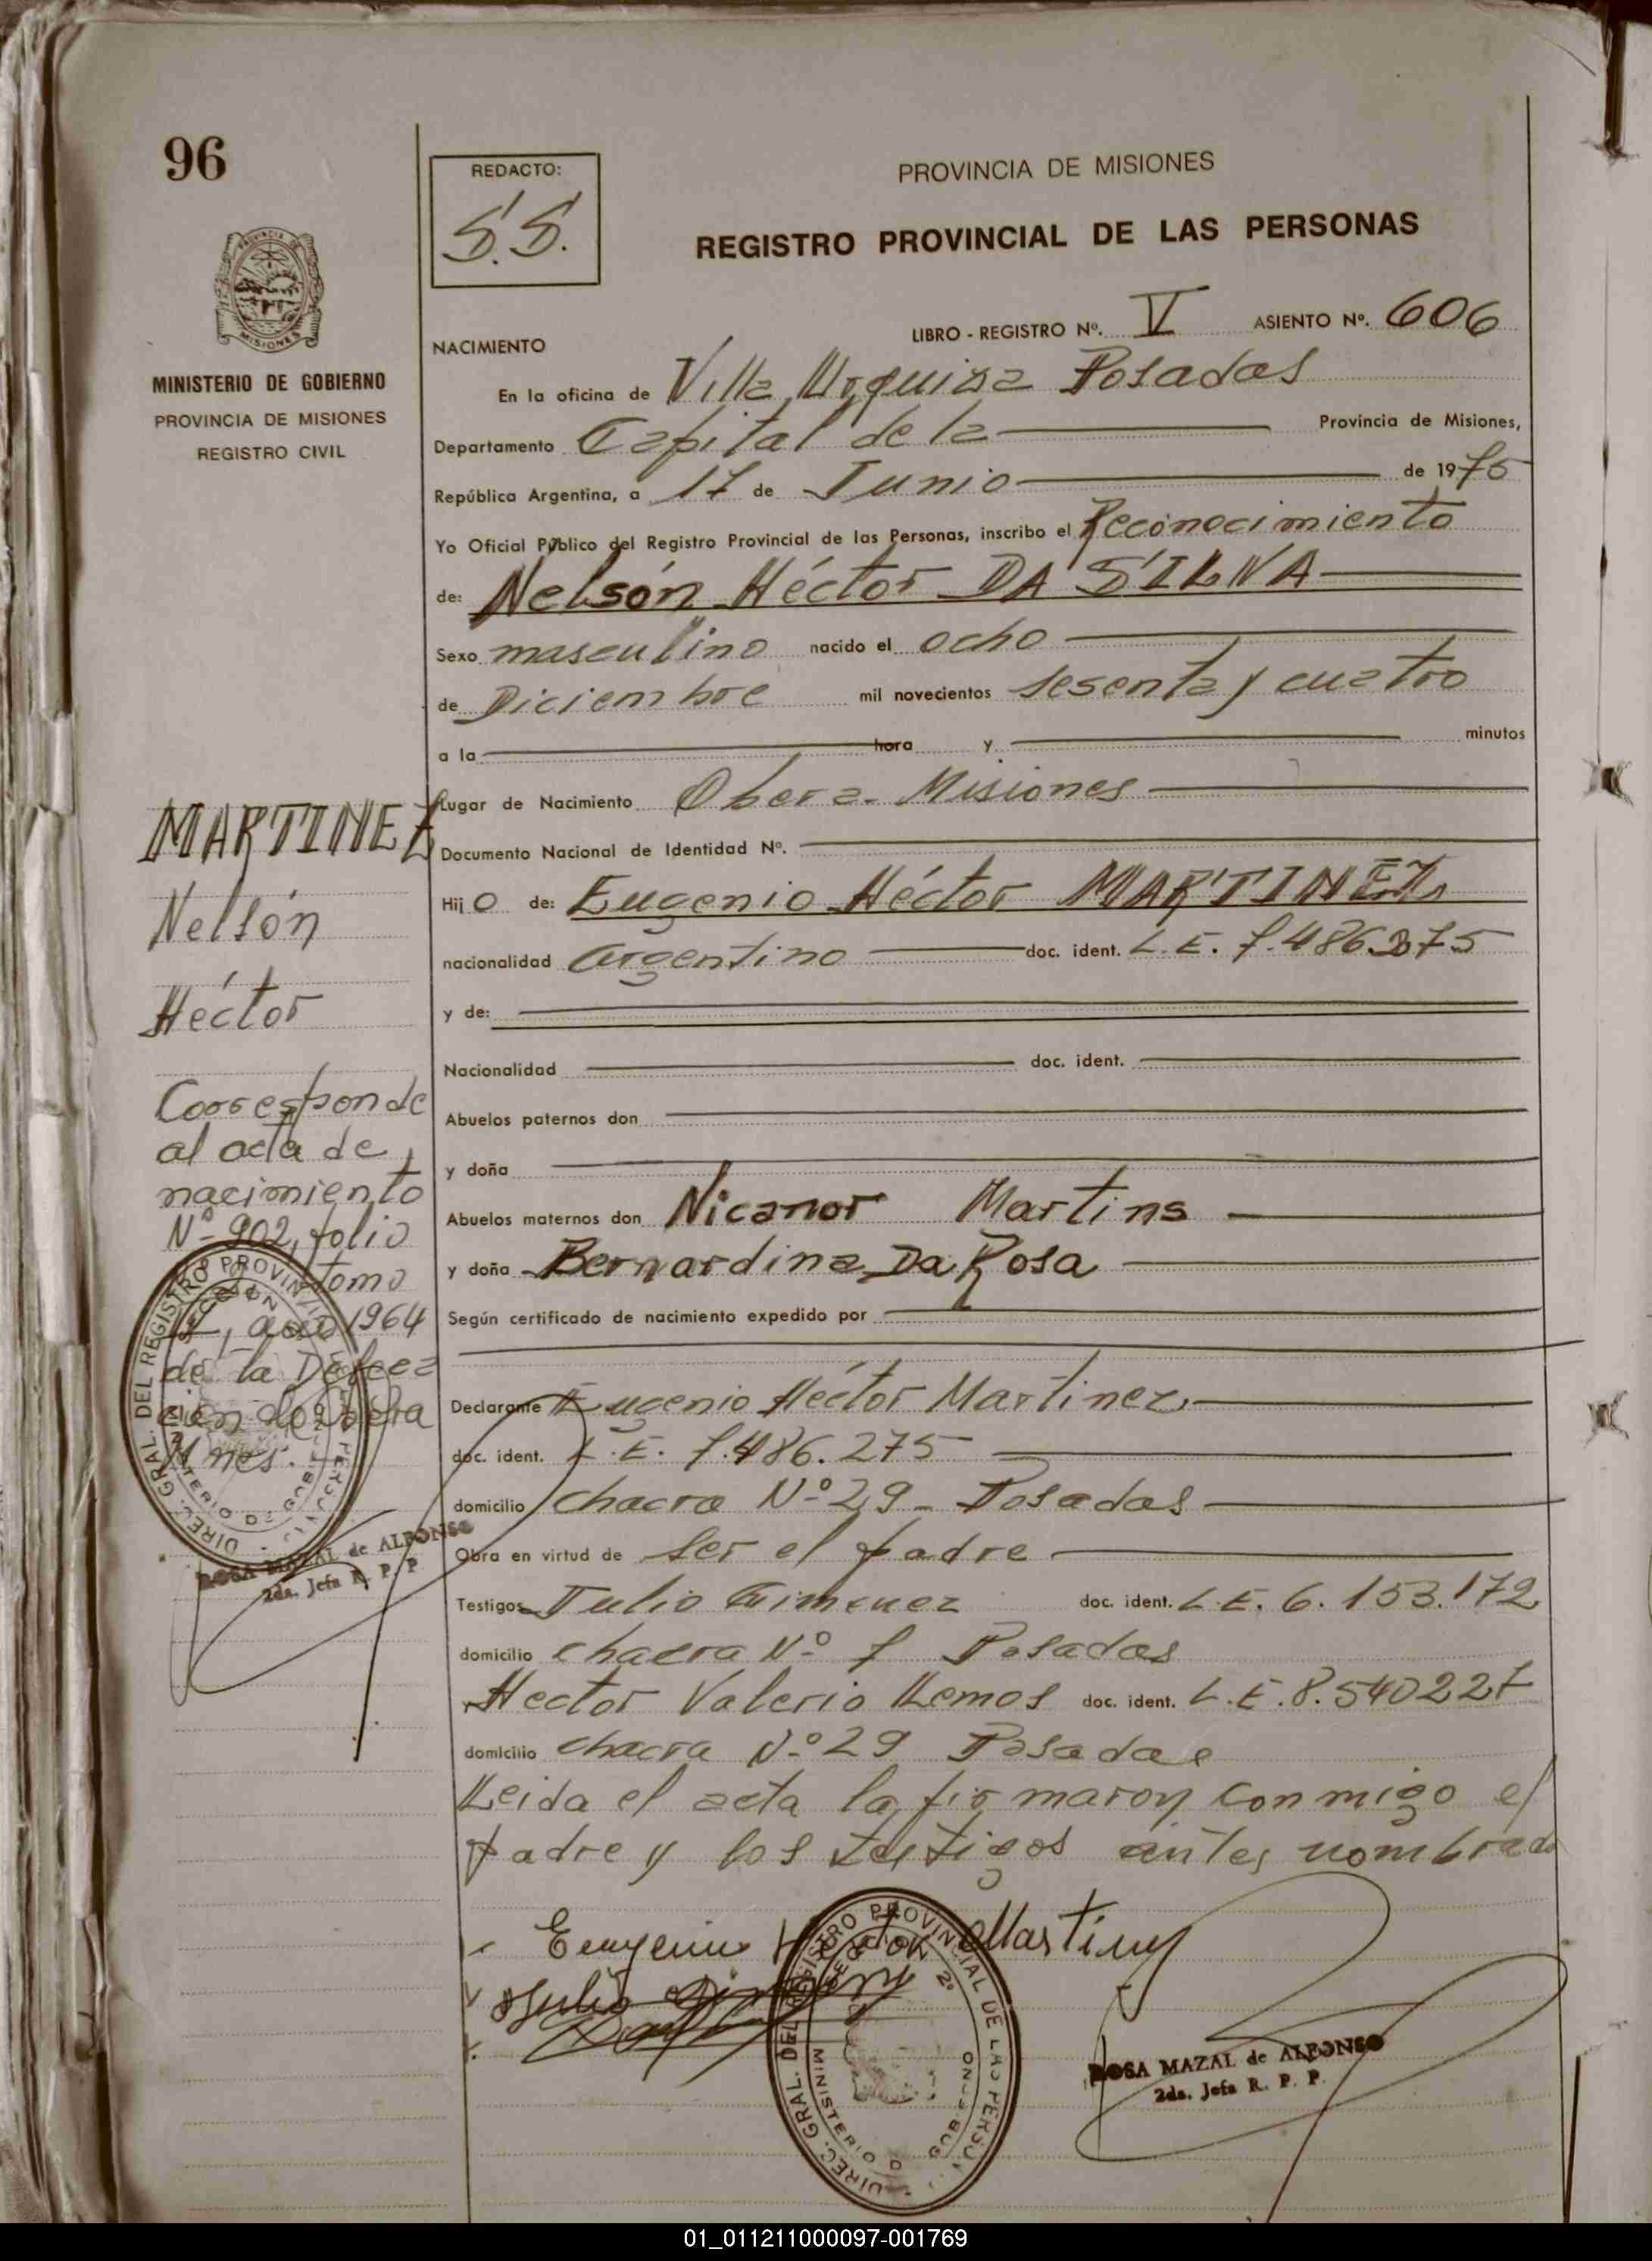 96
REDACTO:
S.S.
PROVINCIA DE MISIONES
REGISTRO PROVINCIAL DE LAS PERSONAS
PROVINCIA DE
MISIONES
MINISTERIO DE GOBIERNO
PROVINCIA DE MISIONES
REGISTRO CIVIL
LIBRO - REGISTRO Nº. V ASIENTO Nº. 606
NACIMIENTO
En la oficina de Villa Urquiza Posadas
Departamento Capital de la Provincia de Misiones,
República Argentina, a 17 de Junio de 1975
Yo Oficial Público del Registro Provincial de las Personas, inscribo el Reconocimiento
de: Nelsón Héctor DA SILVA
Sexo masculino nacido el ocho
de Diciembre mil novecientos sesenta y cuatro
a la hora y minutos
Lugar de Nacimiento Obera - Misiones
Documento Nacional de Identidad Nº.
Hijo de: Eugenio Héctor MARTINEZ
nacionalidad argentino doc. ident. L.E. 7.486.275
y de:
Nacionalidad doc. ident.
Abuelos paternos don
y doña
Abuelos maternos don Nicanor Martins
y doña Bernardina Da Rosa
Según certificado de nacimiento expedido por
Declarante Eugenio Héctor Martinez
doc. ident. L.E. 7.486.275
domicilio chacra Nº 29 - Posadas
Obra en virtud de ser el padre
Testigos Julio Gimenez doc. ident. L.E. 6.153.172
domicilio chacra Nº 7 Posadas
Hector Valerio Lemos doc. ident. L.E. 8.540227
domicilio chacra Nº 29 Posadas
Leida el acta la firmaron conmigo el
padre y los testigos antes nombrado
MARTINEZ
Nelsón
Héctor
Corresponde
al acta de
nacimiento
Nº 902, folio
tomo
, año 1964
de la
Obera
Mnes.
DIREC. GRAL. DEL REGISTRO PROVINCIAL
MINISTERIO DE GOBIERNO
ROSA MAZAL de ALFONSO
2da. Jefa R. P. P.
Eugenio Hector Martinez
Julio Gimenez
DIREC. GRAL. DEL REGISTRO PROVINCIAL DE LAS PERSONAS
MINISTERIO D GOBIERNO
ROSA MAZAL de ALFONSO
2da. Jefa R. P. P.
01_011211000097-001769